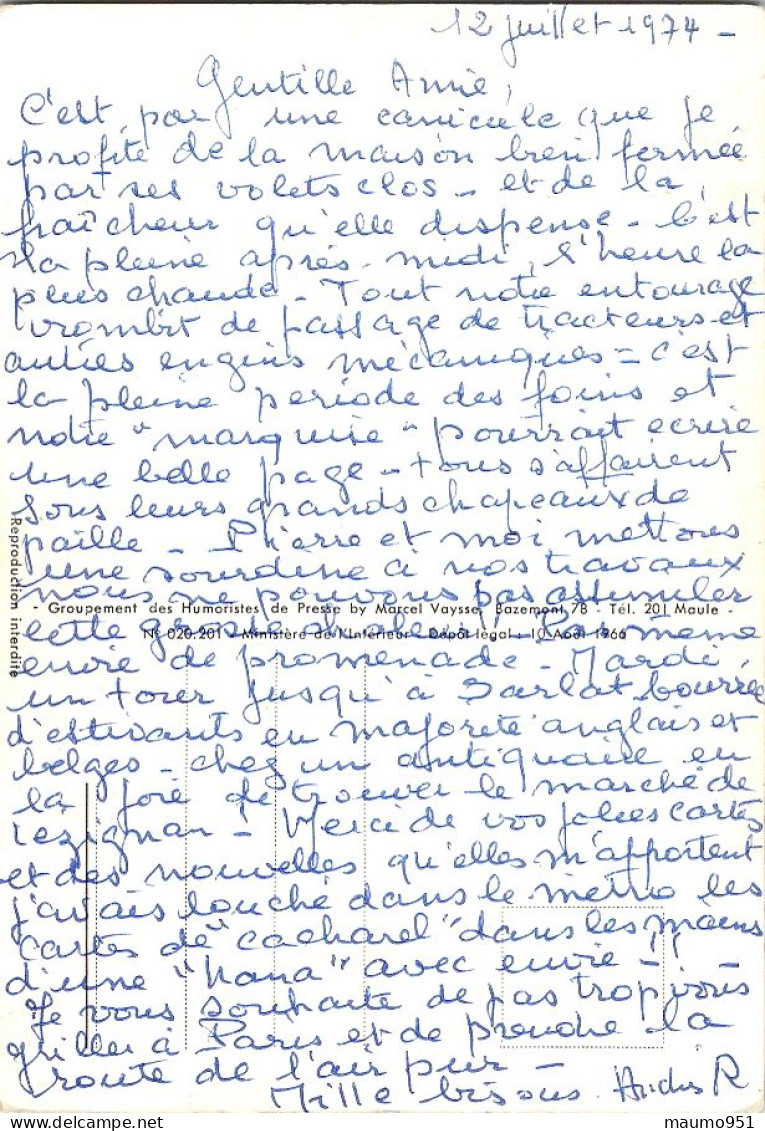 12 juillet 1974 -
Gentille Amie,
C'est par une canicule que je
profite de la maison bien fermée
par ses volets clos - et de la
fraîcheur qu'elle dispense - C'est
la pleine après-midi, l'heure la
plus chaude - Tout notre entourage
vrombit de passage de tracteurs et
autres engins mécaniques = c'est
la pleine période des foins et
notre "marquise" pourrait écrire
une belle page - tous s'affairent
sous leurs grands chapeaux de
paille - Pierre et moi mettons
une sourdine à nos travaux
nous ne pouvons pas assimiler
- Groupement des Humoristes de Presse by Marcel Vaysse, Bazemont 78 - Tél. 201 Maule -
cette grosse chaleur !! Pas même
N° 020.201 - Ministère de l'Intérieur - Dépôt légal : 10 Août 1966
envie de promenade - Mardi,
un tour jusqu'à Sarlat bourrée
d'estivants en majorité anglais et
belges - chez un antiquaire en
la joie de trouver le marché de
Lézignan - Merci de vos jolies cartes
et des nouvelles qu'elles m'apportent
j'avais louché dans le métro les
cartes de "cacharel" dans les mains
d'une "nana" avec envie - !!
Je vous souhaite de pas trop vous
griller à Paris et de prendre la
route de l'air pur -
Mille bisous. R
Reproduction interdite
maumo951